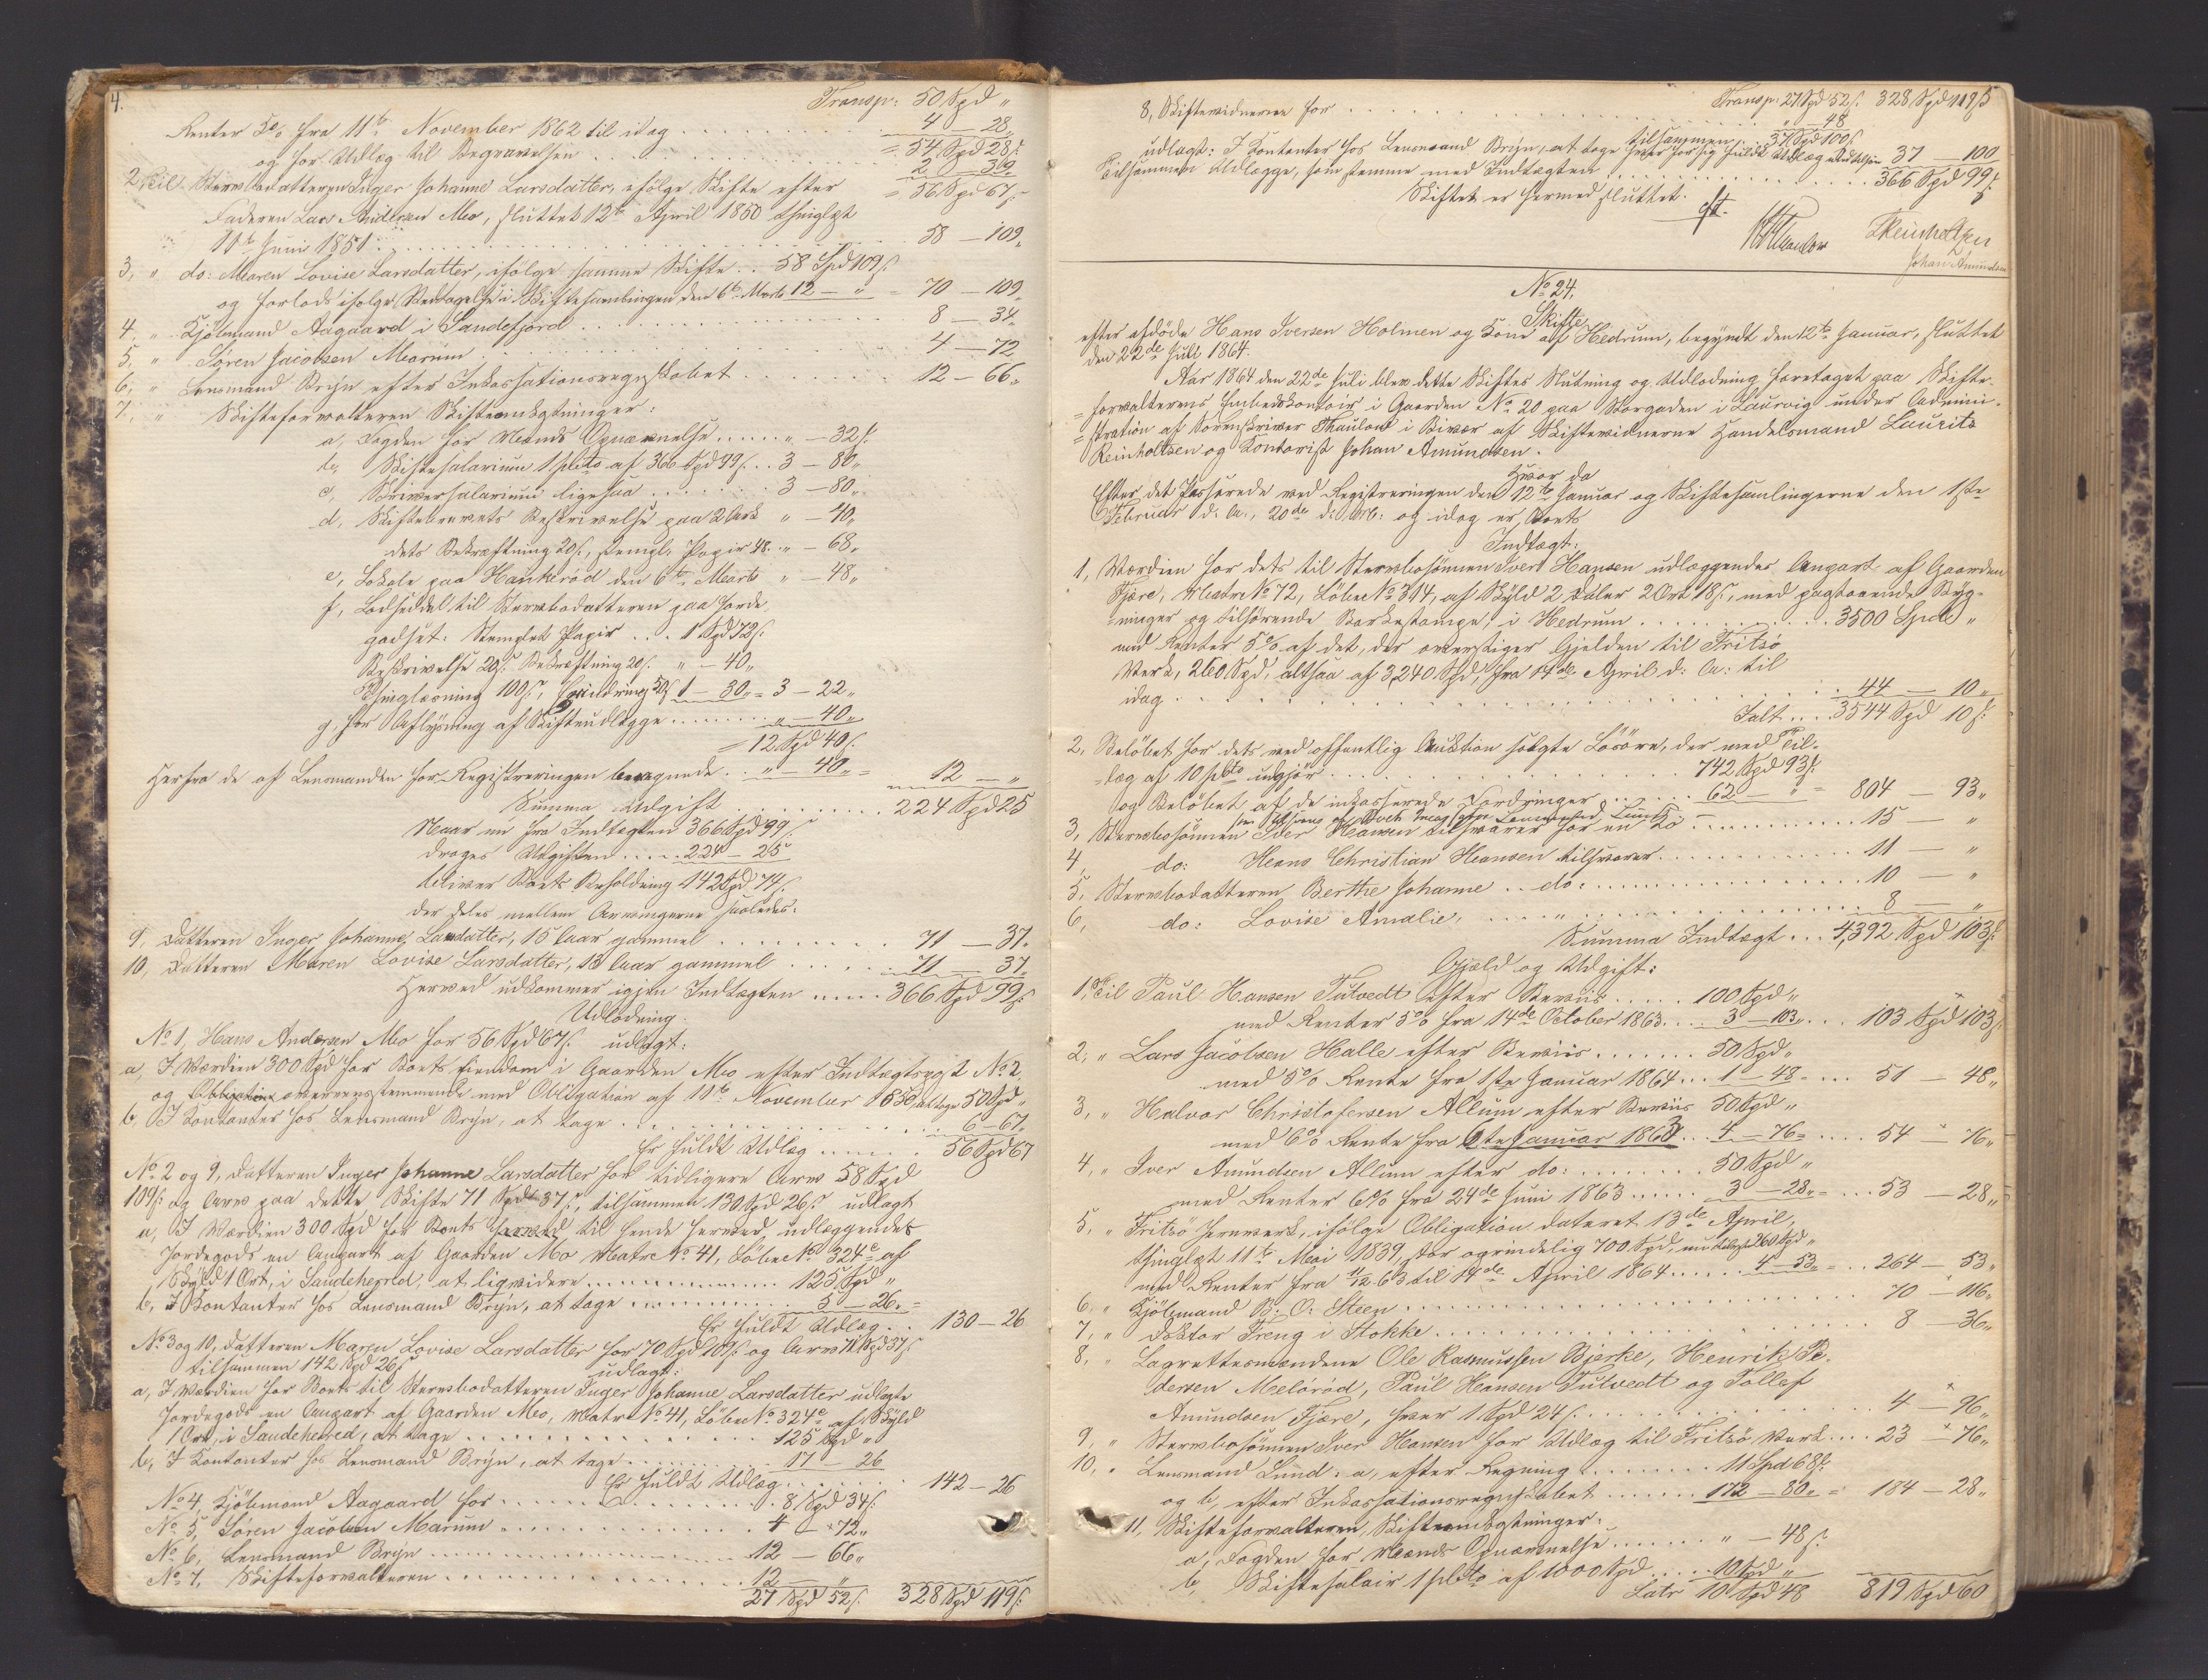 4.
Transp: 50 Spd "
Renter 5% fra 11te November 1862 til idag . . . 4 — 28.
= 54 Spd 28 s.
og for Udlæg til Begravelsen . . . 2 — 39.
= 56 Spd 67 s.
2, Til Sterwbodatteren Inger Johanne Larsdatter, ifølge Skifte efter
Faderen Lars Andersen Mo, sluttet 12te April 1850 thinglæst
11te Juni 1851 . . . 58 — 109.
3, " do: Maren Lovise Larsdatter, ifølge samme Skifte . . 58 Spd 109 s.
og Forlods ifølge Vedtagelse i Skiftesamlingen den 6te Marts 12 — " = 70 — 109.
4, " Kjøbmand Aagaard i Sandefjord . . . 8 — 34.
5, " Søren Jacobsen Marum . . . 4 — 72
6, " Lensmand Bryn efter Inkassationsregnskabet . . . 12 — 66.
7, " Skifteforwalteren Skifteomkostninger:
a, Fogden for Mænds Opnævnelse . . . " — 32 s.
b, Skiftesalarium 1 pCto af 366 Spd 99 s. . . 3 — 80.
c, Skriversalarium ligesaa . . . 3 — 80.
d, Skiftebrevets Beskrivelse paa 2 Ark " — 40.
dets Bekræftning 20 s., stempl: Papir 48. " — 68.
e, Lokale paa Haukerød den 6te Marts " — 48.
f, Lodseddel til Sterwbodatteren paa Jorde-
godset: Stemplet Papir . . . 1 Spd 72 s.
Beskrivelse 20 s. Bekræftning 20 s. " — 40.
Thinglæsning 100 s., 50 s. 1 — 30. = 3 — 22.
g, for Aflysning af Skifteudlægge . . . " — 40.
= 12 Spd 40 s.
Herfra de af Lensmanden for Registreringen beregnede . . " — 40. = 12 — "
Summa Udgift . . . 224 Spd 25
Naar nu fra Indtægten 366 Spd 99 s.
drages Udgiften . . . 224 — 25
bliver Boets Beholdning 142 Spd 74 s.
der deles mellem Arvingerne saaledes:
9, Datteren Inger Johanne Larsdatter, 15 Aar gammel . . . 71 — 37.
10, Datteren Maren Lovise Larsdatter, 13 Aar gammel . . . 71 — 37.
Herved udkommer igjen Indtægten . . . 366 Spd 99 s.
Udlodning.
No 1, Hans Andersen Mo for 56 Spd 67 s. udlagt:
a, I Værdien 300 Spd for Boets Eiendom i Gaarden Mo efter Indtægtspost No 2
og Obligation overensstemmende med Obligation af 11te November 1850 at tage 50 Spd "
b, I Kontanter hos Lensmand Bryn, at tage . . . 6 — 67.
Er fuldt Udlæg . . . 56 Spd 67
No 2 og 9, Datteren Inger Johanne Larsdatter for tidligere Arv 58 Spd
109 s. og Arv paa dette Skifte 71 Spd 37 s., tilsammen 130 Spd 26 s. udlagt
a, I Værdien 300 Spd for Boets herved til hende herved udlæggendes
Jordegods en Anpart af Gaarden Mo Matr No 41, Løbe No 324c af
Skyld 1 Ort, i Sandeherred, at liqvidere . . . 125 Spd "
b, I Kontanter hos Lensmand Bryn, at tage . . . 5 — 26. =
Er fuldt Udlæg . . 130 — 26
No 3 og 10, Datteren Maren Lovise Larsdatter for 70 Spd 109 s. og Arv 71 Spd 37 s.
tilsammen 142 Spd 26 s. udlagt:
a, I Værdien for Boets til Sterwbodatteren Inger Johanne Larsdatter udlagte
Jordegods en Anpart af Gaarden Mo, Matr No 41, Løbe No 324c af Skyld
1 Ort, i Sandeherred, at tage . . . 125 Spd "
b, I Kontanter hos Lensmand Bryn, at tage . . . 17 — 26
Er fuldt Udlæg . . . 142 — 26
No 4, Kjøbmand Aagaard for . . . 8 Spd 34 s.
No 5, Søren Jacobsen Marum . . . 4 — 72.
No 6, Lensmand Bryn . . . 12 — 66.
No 7, Skifteforwalteren . . . 12 — "
27 Spd 52 s. 328 Spd 119 s.
Transp: 27 Spd 52 s. 328 Spd 119 s
8, Skiftevidnerne for . . . " — 48
tilsammen . . 37 Spd 100 s.
udlagt: I Kontanter hos Lensmand Bryn, at tage hver for sig fuldt Udlæg 37 — 100
Tilsammen Udlægge, som stemme med Indtægten . . . 366 Spd 99 s.
Skiftet er hermed sluttet.
Thaulow LReinholtsen
Johan Amundsen
No 24.
Skifte
efter afdøde Hans Iversen Holmen og Kone af Hedrum, begyndt den 12te Januar, sluttet
den 22de Juli 1864.
Aar 1864 den 22de Juli blev dette Skiftes Slutning og Udlodning foretaget paa Skifte-
=forwalterens Embedskontoir i Gaarden No 20 paa Storgaden i Laurvig under Admini-
=stration af Sorenskriver Thaulow i Bivær af Skiftevidnerne Handelsmand Laurits
Reinholtsen og Kontorist Johan Amundsen.
Hvor da
Efter det Passerede ved Registreringen den 12te Januar og Skiftesamlingerne den 1ste
Februar d: A., 20de d: M: og idag er Boets
Indtægt:
1, Værdien for dets til Sterwbosønnen Iver Hansen udlæggendes Anpart af Gaarden
Fjære, Matr No 72, Løbe No 314, af Skyld 2 Daler 2 Ort 18 s, med paastaaende Byg-
ninger og tilhørende Barkestampe, i Hedrum . . . 3500 Spd "
med Renter 5% af det, der overstiger Gjelden til Fritsø
Verk, 260 Spd, altsaa af 3,240 Spd, fra 14de April d: A: til
idag . . . 44 — 10.
Ialt . . . 3544 Spd 10 s.
2, Beløbet for dets ved offentlig Auktion solgte Løsøre, der med Til-
=læg af 10 pCto udgjør . . . 742 Spd 93 s.
og Beløbet af de inkasserede Fordringer . . . 62 — " = 804 — 93.
3, Sterwbosønnen Iver Hansen tilsvarer for en Ko . . . 15 — "
4, do: Hans Christian Hansen tilsvarer . . . 11 — "
5, Sterwbodatteren Berthe Johanne . . do: . . . 10 — "
6, do: Lovise Amalie, . . . " . . . 8 — "
Summa Indtægt . . . 4,392 Spd 103 s.
Gjæld og Udgift:
1, Til Paul Hansen Tutvedt efter Beviis . . . 100 Spd "
med Renter 5% fra 14de October 1863 . . . 3 — 103. . . . 103 Spd 103 s.
2, " Lars Jacobsen Halle efter Beviis . . . 50 Spd "
med 5% Rente fra 1ste Januar 1864 . . . 1 — 48. . . . 51 — 48.
3, " Halvor Christofersen Allum efter Beviis 50 Spd "
med 6% Rente fra 6te Januar 1863 . . . 4 — 76 = . . . 54 — 76.
4, " Iver Amundsen Allum efter do: . . . 50 Spd "
med Renter 6% fra 24de Juni 1863 . . . 3 — 28. = . . . 53 — 28.
5, " Fritsø Jernverk, ifølge Obligation dateret 13de April,
thinglæst 11te Mai 1839, stor oprindelig 700 Spd, nu 260 Spd "
med Renter fra 11/12 63 til 14de April 1864 . . . 4 — 53. = . . 264 — 53.
6, " Kjøbmand B. O. Steen . . . 70 — 116.
7, " Doktor Treng i Stokke . . . 8 — 36.
8, " Lagrettesmændene Ole Rasmussen Bjerke, Henrik Pe-
dersen Melørød, Paul Hansen Tutvedt og Tollef
Amundsen Fjære, hver 1 Spd 24 s. . . . 4 — 96.
9, " Sterwbosønnen Iver Hansen for Udlæg til Fritsø Verk . . . 23 — 76.
10, " Lensmand Lund: a, efter Regning . . . 11 Spd 68 s.
og b, efter Inkassationsregnskabet . . . 172 — 80. = 184 — 28.
11, Skifteforwalteren, Skifteomkostninger:
a, Fogden for Mænds Opnævnelse . . . " — 48 s.
b, Skiftesalair 1 pCto af 1000 Spd . . . 10 Spd "
Latr 10 Spd 48 819 Spd 60